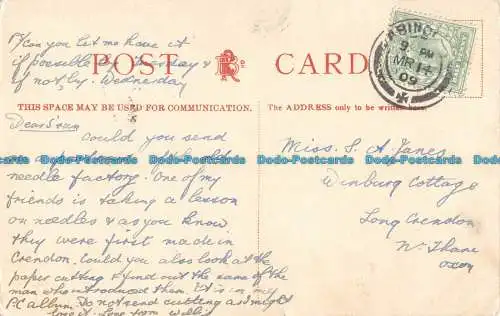 P/S Can you let me have it
if possible by Tuesday &
if not by Wednesday
POST CARD
THIS SPACE MAY BE USED FOR COMMUNICATION.
The ADDRESS only to be
ABING
9 PM
MR 14
09
Dear
Could you send
me a
needle factory. One of my
friends is taking a lesson
on needles & as you know
they were first made in
Crendon. Could you also look at the
paper cutting & find out the name of the
man who introduced them. It is in my
P.C album. Do not send cutting as I might
lose it. Love from
Miss. S. A. Janes
Winburg Cottage
Long Crendon
Nr Thame
Oxon
Dado-Postcards Dado-Postcards Dado-Postcards Dado-Postcards Dado-Postcards